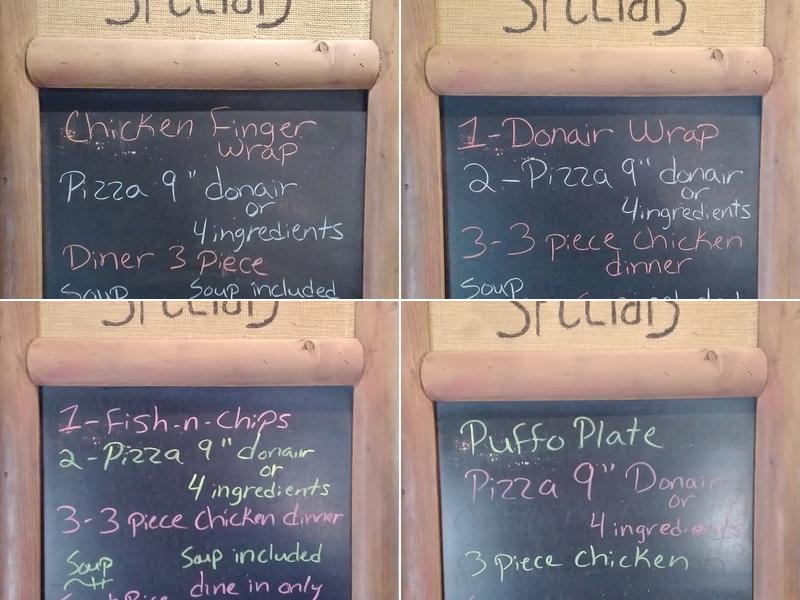 Chicken Finger
wrap
Pizza 9" donair
or
4 ingredients
Diner 3 Piece
Soup Soup included
1-Donair Wrap
2-Pizza 9" donair
or
4ingredients
3-3 piece Chicken
dinner
Soup
1-Fish-n-Chips
2-Pizza 9" donair
or
4 ingredients
3-3 piece Chicken dinner
Soup Soup included
dine in only
Puffo Plate
Pizza 9" Donair
or
4 ingredients
3 piece Chicken